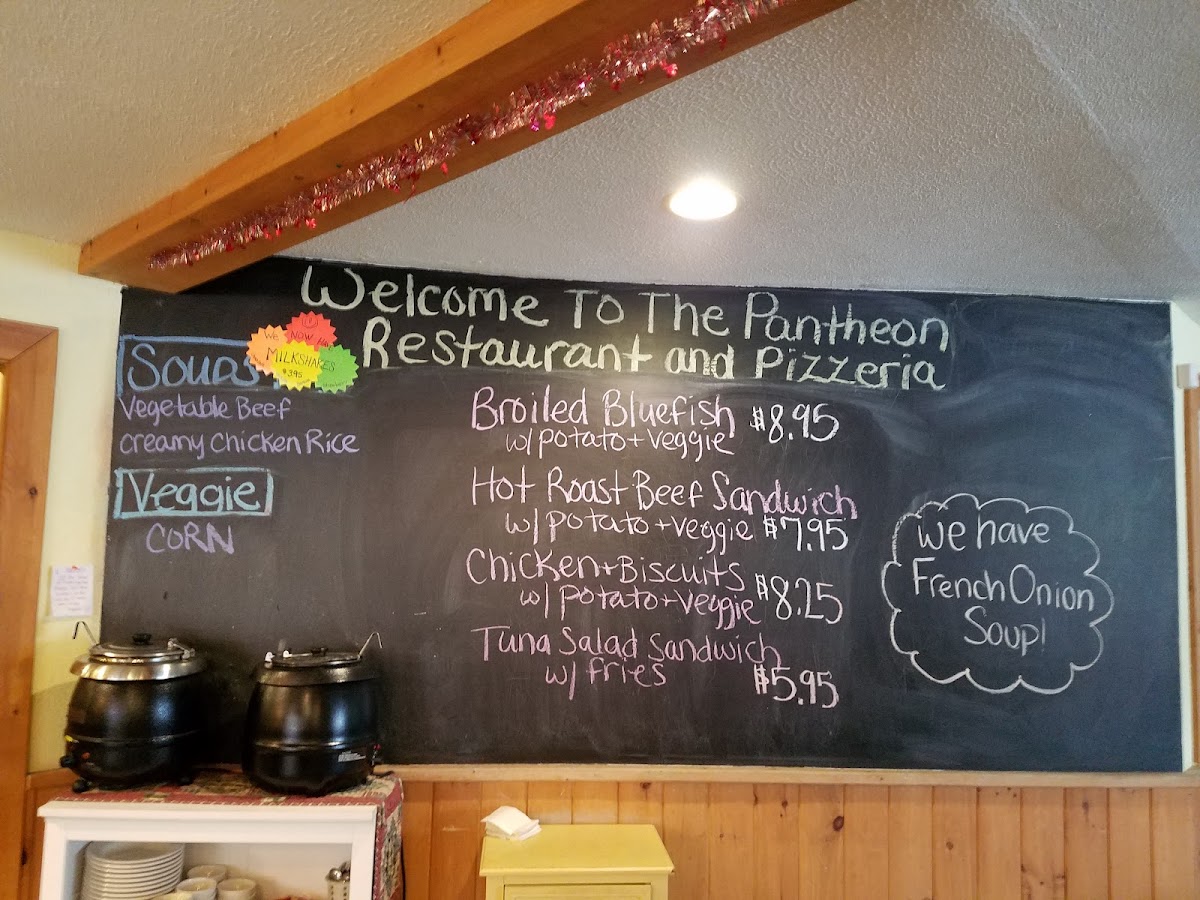 Welcome To The Pantheon
Restaurant and Pizzeria
Soups
We NOW
MILKSHAKES
$3.95
Vegetable Beef
creamy Chicken Rice
Veggie
CORN
Broiled Bluefish $8.95
w/potato+veggie
Hot Roast Beef Sandwich
w/potato+veggie $7.95
Chicken+Biscuits
w/potato+veggie $8.25
Tuna Salad Sandwich
w/ fries $5.95
we have
French Onion
Soup!